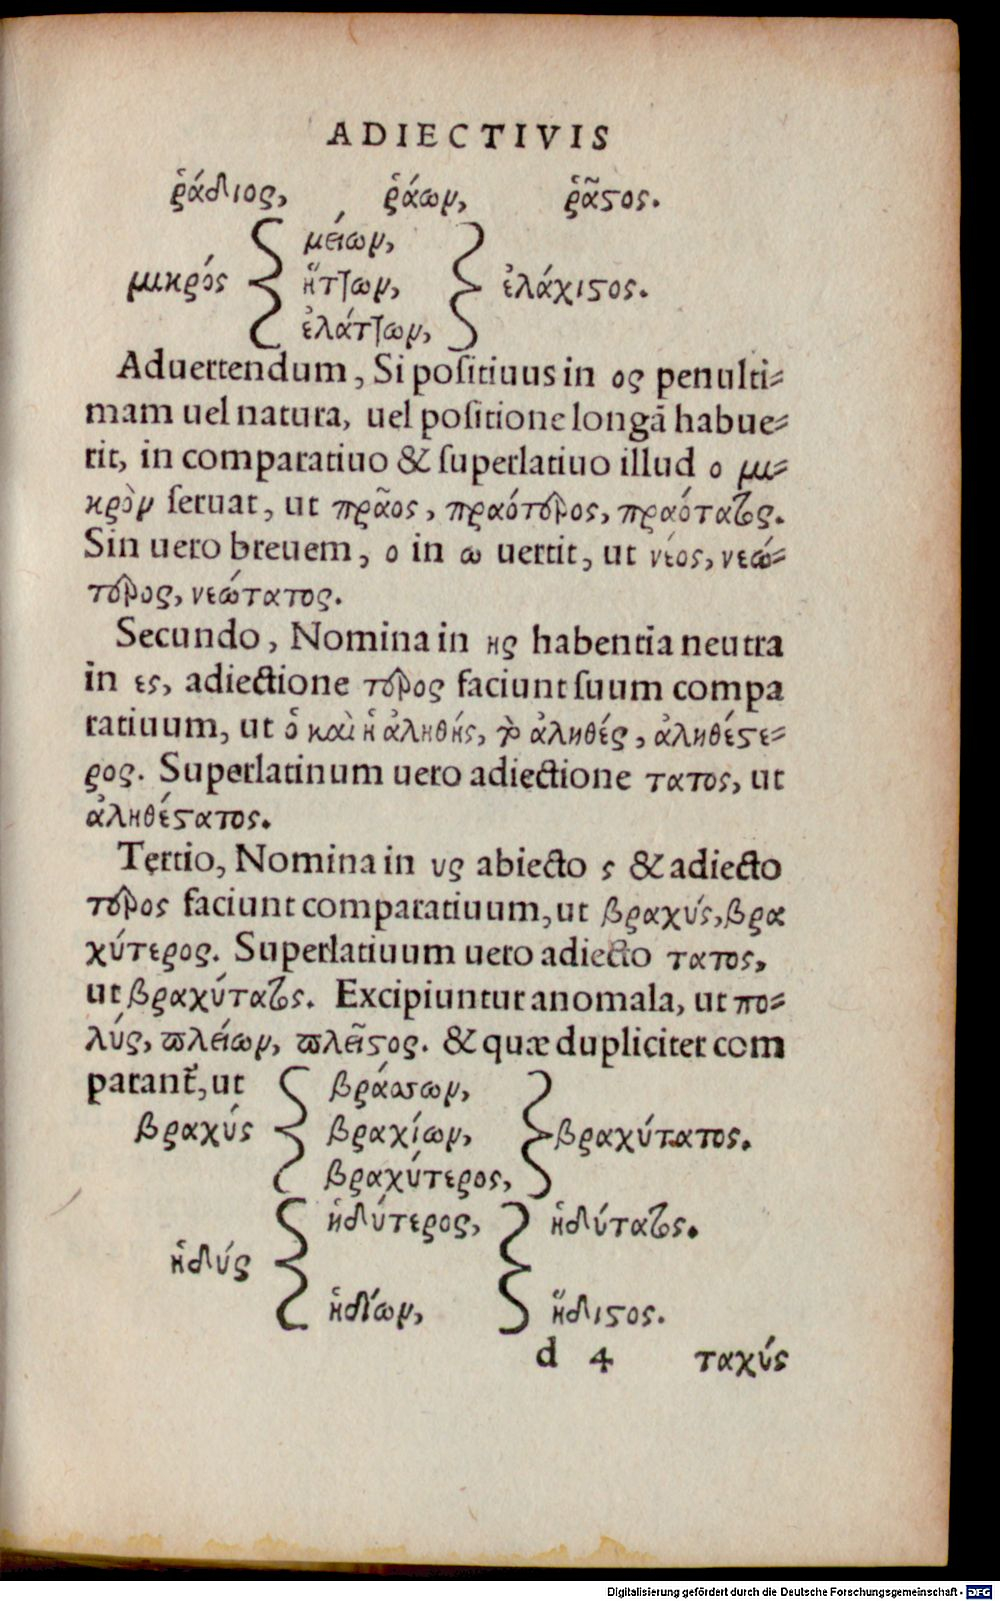 ADIECTIVIS
ῥάδιος, ῥάων, ῥᾶϛος.
μείων,
μικρός ἥτ͵ων, ἐλάχιϛος.
ἐλάτ͵ων,
Aduertendum, Si poſitiuus in ος penulti-
mam uel natura, uel poſitione longā habue-
rit, in comparatiuo & ſuperlatiuo illud ο μι-
κρὸν ſeruat, ut πρᾶος, πραότερος, πραότατος.
Sin uero breuem, ο in ω uertit, ut νέος, νεώ-
τερος, νεώτατος.
Secundo, Nomina in ης habentia neutra
in ες, adiectione τερος faciunt ſuum compa
ratiuum, ut ὁ καὶ ἡ ἀληθής, τὸ ἀληθές, ἀληθέϛε-
ρος. Superlatinum uero adiectione τατος, ut
ἀληθέϛατος.
Tertio, Nomina in υς abiecto ς & adiecto
τερος faciunt comparatiuum, ut βραχύς, βρα
χύτερος. Superlatiuum uero adiecto τατος,
ut βραχύτατος. Excipiuntur anomala, ut πο-
λύς, πλείων, πλεῖϛος. & quæ dupliciter com
parant᷑, ut βράσσων,
βραχύς βραχίων, βραχύτατος.
βραχύτερος,
ἡδύτερος, ἡδύτατος.
ἡδύς
ἡδίων, ἥδιϛος.
d 4 ταχύς
Digitalisierung gefördert durch die Deutsche Forschungsgemeinschaft - DFG